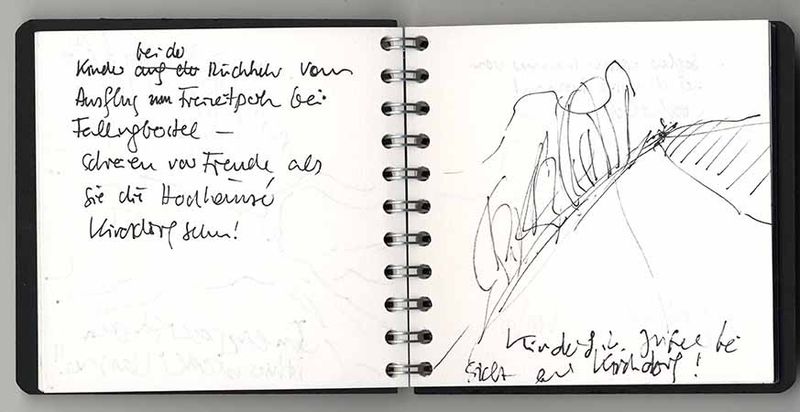 bei der
Kinder auf der Rückkehr vom
Ausflug zum Freizeitpark bei
Fallingbostel —
schreien vor Freude als
sie die Hochhäuser
Kirchdorf sehn!
Kinder bei
Sicht auf Kirchdorf!